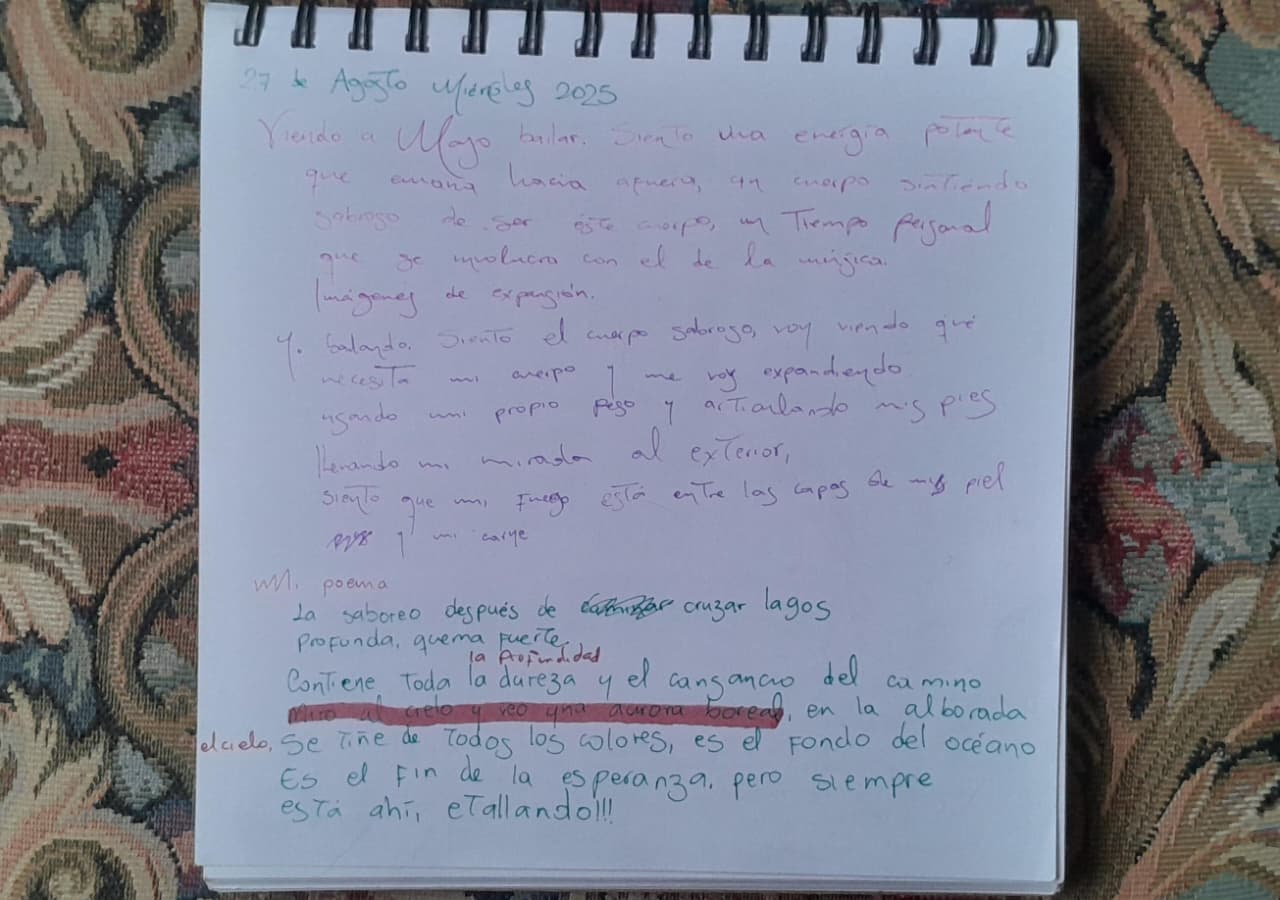 27 de Agosto Miércoles 2025
Viendo a Majo bailar. Siento una energía potente
que emana hacia afuera, un cuerpo sintiendo
sabroso de ser éste cuerpo, un Tiempo personal
que se involucra con el de la música.
Imágenes de expansión.
Y. bailando. Siento el cuerpo sabroso, voy viendo qué
necesita mi cuerpo y me voy expandiendo
usando mi propio peso y articulando mis pies
llevando mi mirada al exterior,
siento que mi fuego está entre las capas de my piel
y mi carne
poema
La saboreo después de cruzar lagos
Profunda, quema fuerte.
la Profundidad
Contiene toda la dureza y el cansancio del camino
Miro al cielo y veo una aurora boreal, en la alborada
el cielo, Se tiñe de todos los colores, es el fondo del océano
Es el fin de la esperanza, pero siempre
está ahí, etallando!!!